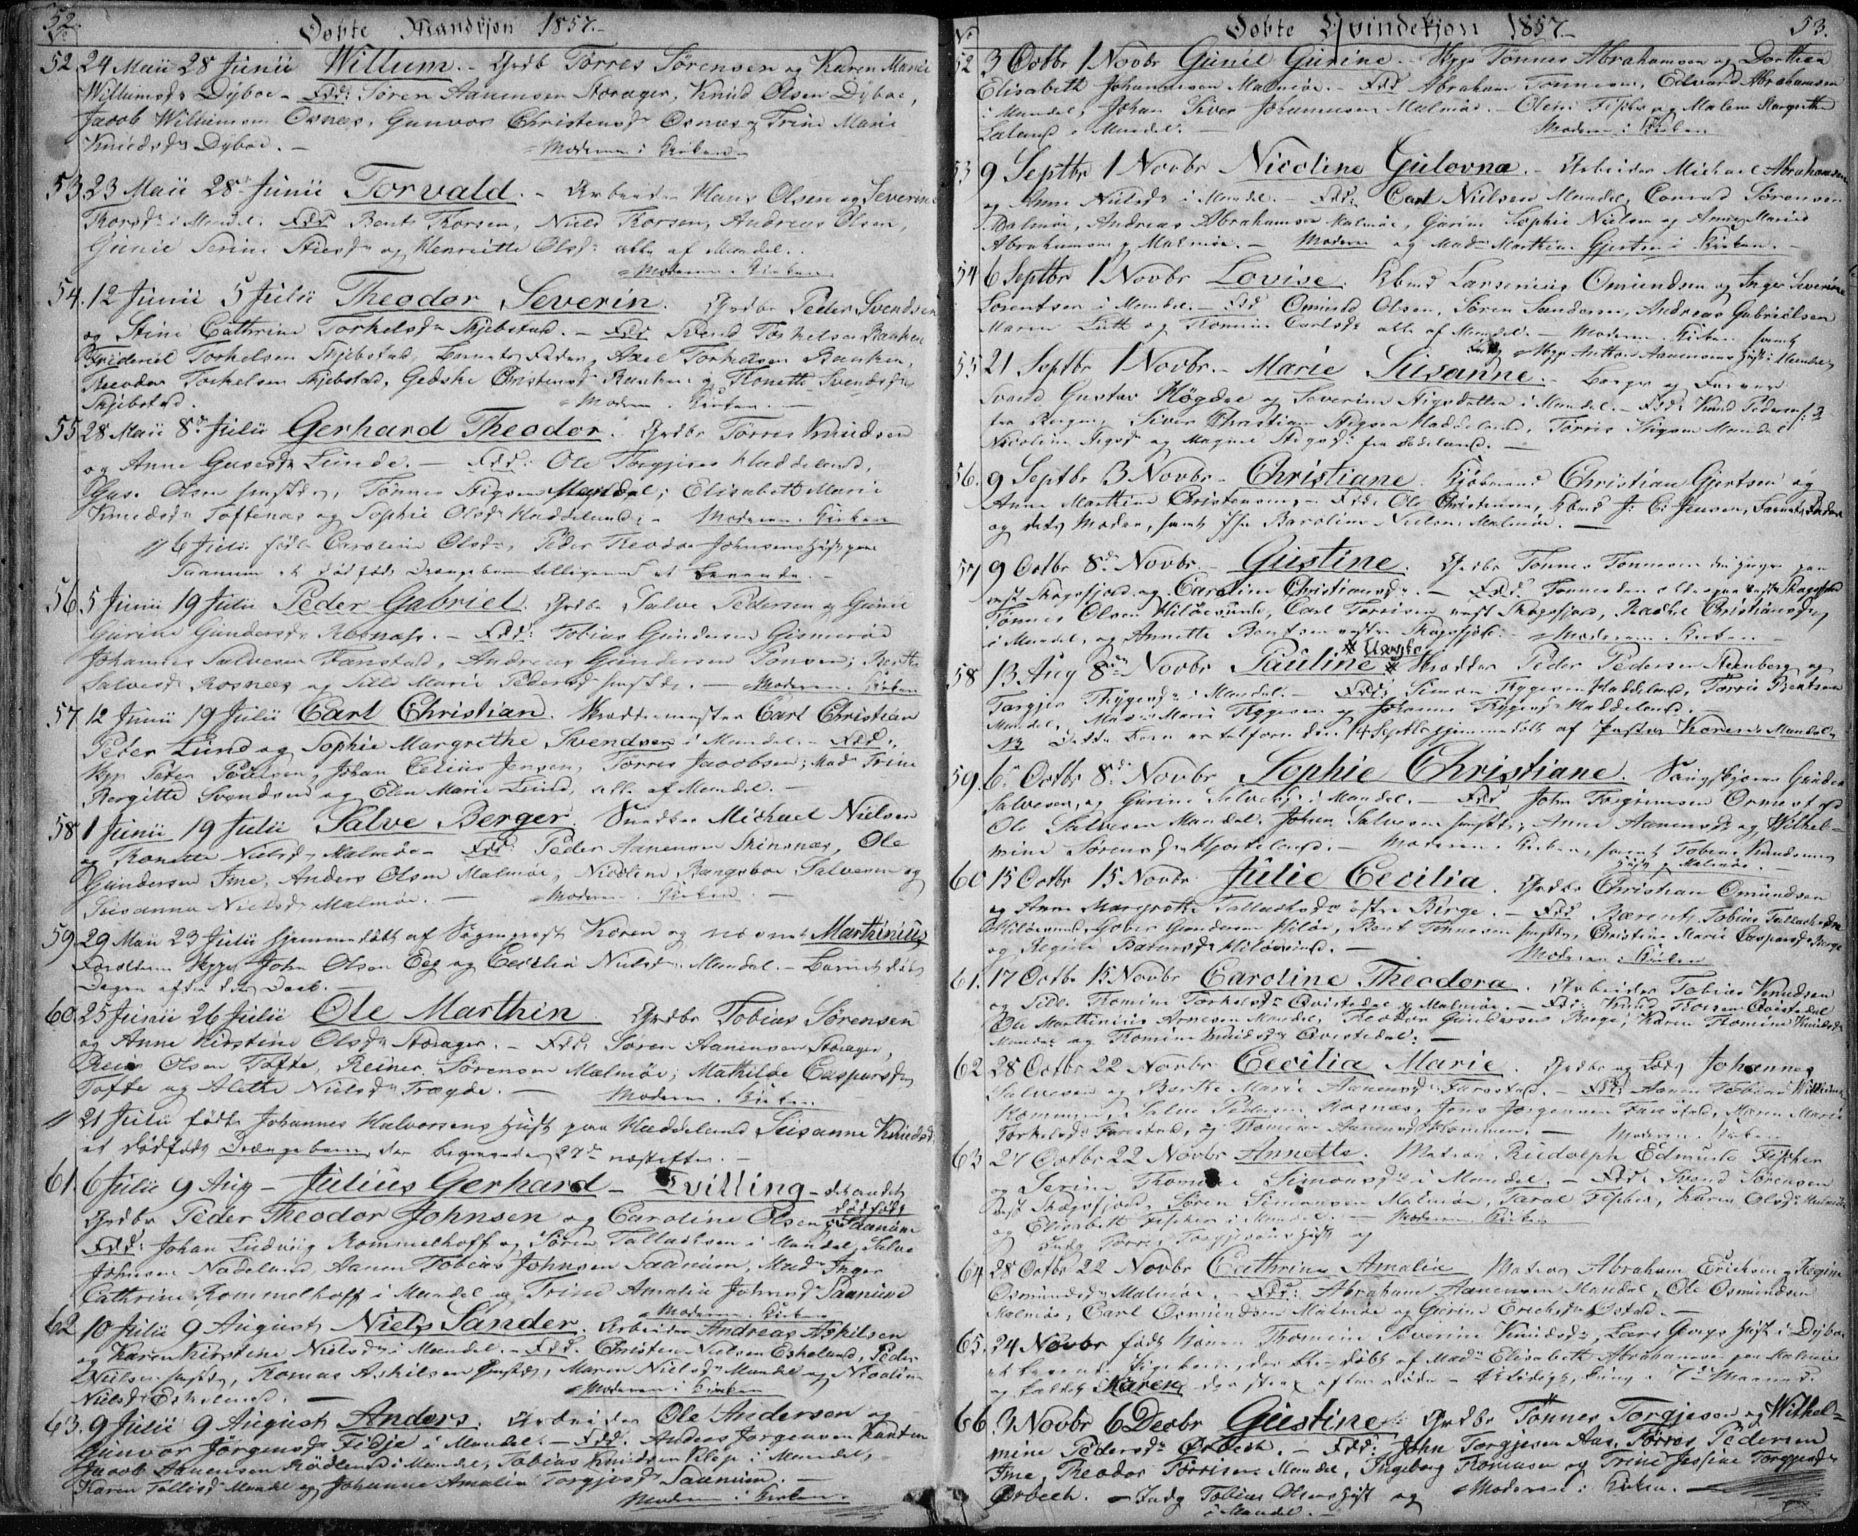 52.
Døbte Mandkjøn 1857.
52 24 Maii 28 Junii Willum. - Grdbr Tørres Sørensen og Karen Marie
Willumsdr Dyboe - Fdd: Søren Aanensen Storager, Knud Olsen Dyboe,
Jacob Willumsen Osnes, Gunvor Christensdr Osnes og Trine Marie
Knudsdr Dyboe. - Moderen i Kirken
53 23 Maii 28 Junii Torvald. - Arbeider Hans Olsen og Severine
Thorsdr i Mandal. Fdd Bent Thorsen, Niels Thorsen, Andreas Olsen,
Gunie Serine og Henriette Olsdr alle af Mandal.
Moderen i Kirken
54. 12 Junii 5 Julii Theodor Severin. Grdbr Peder Svendsen
og Stine Cathrine Torkelsdr Skjebstad. - Fdd Svend Torkelsen Banken
Friderik Torkelsen Skjebstad, Barnets Fader, Axel Torkelsen Banken,
Theodor Torkelsen Skjebstad, Gedske Christensdr Banken og Tonette Svendsdr
Skjebstad. Moderen i Kirken. -
55 28 Maii 8de Julii Gerhard Theodor. Grdbr Tørres Knudsen
og Anne Gusesdr Lunde. - Fdd: Ole Torgjesen Haddeland,
Guse Olsen, Tønnes Stigsen Mandal; Elisabeth Marie
Knudsdr Toftenes og Sophie Olsdr Haddeland. - Moderen i Kirken
" 6 Julii født Caroline Olsdr, Peder Theodor Johnsens Hust paa
Saanum et dødfødt Drængebarn tilligemed et levende. -
56 5 Junii 19 Julii Peder Gabriel. Grdbr Salve Pedersen og Gunil
Gurine Gundersdr Rosnes. - Fdd: Tobias Gundersen Gismerøe
Johannes Salvesen Farestad, Andreas Gundersen; Berthe
Salvesdr Rosnes og Sille Marie Pedersdr. - Moderen i Kirken
57. 12 Junii 19 Julii Carl Christian. Skreddermester Carl Christian
Peter Lund og Sophie Margrethe Svendsen i Mandal. - Fdd:
Skpp Peter Poulsen, Johan Celius Jensen, Tørres Jacobsen; Mad Trine
Bergitte Svendsen og Elen Marie Lund, alle af Mandal. -
58 1 Junii 19 Julii Salve Berger. Snedker Michael Nielsen
og Tonette Nielsdr Malmøe - Fdd: Peder Aanensen Skinsnes, Ole
Gundersen Ime, Anders Olsen Malmøe, Nicoline Rangsboe Salvesen og
Susanne Nielsdr Malmøe. - Moderen i Kirken -
59 29 Maii 23 Julii hjemmedøbt af Sogneprest Koren og nævnt Marthinius
Forældrene Skpp John Olsen Eeg og Cecilia Nielsdr Mandal. - Barnet døde
Dagen efter dets Daab. -
60 25 Junii 26 Julii Ole Marthin Grdbr Tobias Sørensen
og Anne Kirstine Olsdr Storager. - Fdd: Søren Aanensen Storager,
Reier Olsen Tofte, Reiner Sørensen Malmøe; Mathilde Caspersdr
Tofte og Alette Nielsdr Trægde. - Moderen i Kirken
" 21 Julii fødte Johannes Halvorsens Hust paa Haddeland Susanne Knudsdr
et dødfødt Drængebarn, der begravedes 27de næstefter. -
61. 6 Julii 9 Aug - Julius Gerhard - Tvilling - det andet
dødfødt
Grdbr Peder Theodor Johnsen og Caroline Olsen Saanum
Fdd: Johan Ludvig Rommelhoff og Søren Tallachsen i Mandal, Salve
Johnsen Nodeland, Aanen Tobias Johnsen Saanum, Mad Inger
Cathrine Rommelhoff i Mandal og Trine Amalia Johnsdr Saanum
Moderen i Kirken
62 10 Julii 9 August Niels Sander. Arbeider Andreas Askilsen
og Karen Kirstine Nielsdr i Mandal. - Fdd: Christen Nielsen Eskeland, Peder
Nielsen, Thomas Askilsen, Maren Nielsdr Mandal og Nicoline
Nielsdr Eskeland. - Moderen i Kirken
63. 9 Julii 9 August Anders. Arbeider Ole Andersen og
Gunvor Jørgensdr Fidje i Mandal. - Fdd: Anders Jørgensen
Jacob Aanensen Rødland i Mandal, Tobias Knudsen Klep i Mandal,
Karen Tallisdr Mandal og Johanne Amalia Torgjesdr Saanum. -
Moderen i Kirken.
53.
Døbte Qvindekjøn 1857
No
52 3 Octbr 1 Novbr Gunil Gurine. - Skpp Tønnes Abrahamsen og Dorthea
Elisabeth Johannesen Malmøe. - Fdd Abraham Tønnesen, Edvard Abrahamsen
i Mandal, Johan Siver Johannesen Malmøe. - Oline Fisher og Malene Margrethe
Laland i Mandal. - Moderen i Kirken
53 9 Septbr 1 Novbr Nicoline Gulovna. - Arbeider Michael Abrahamsen
og Anne Nielsdr i Mandal. - Fdd: Carl Nielsen Mandal, Conrad Sørensen
Malmøe, Andreas Abrahamsen Malmøe, Gurine Sophie Nielsen og Anne Marie
Abrahamsen Malmøe. - Moderen og Mad Marthine Gjertsen i Kirken. -
54 6 Septbr 1 Novbr Lovise. Kbmd Larsenius Omundsen og Inger Severine
Lorentsen i Mandal. - Fdd Omund Olsen, Søren Sandersen, Andreas Gabrielsen
Maren Lutt og Thomine Carlsdr alle af Mandal. - Moderen i Kirken samt
Skpp Anthon Aanensens Hust i Mandal
55 21 Septbr 1 Novbr. - Marie Susanne. - Borger og Farver
Svend Gustav Høgdae og Severine Stigsdatter i Mandal. - Fdd: Knud Pedersen
fra Bergen, Siver Christian Stigsen Haddeland, Tørris Stigsen Mandal
Nicoline Stigsdr og Magne Stigsdr fra Haddeland. -
56. 9 Septbr 3 Novbr - Christiane. Kjøbmand Christian Gjertsen og
Anne Marthine Christensen, - Fdd: Ole Christensen, Kbmd J. C. Jensen, Barnets Fader
og dets Moder, samt Jfr Karoline Nielsen Malmøe. -
57 9 Octbr 8de Novbr. - Gustine. Grdbr Tønnes Tønnesen den yngre paa
vest Skogsfjord og Caroline Christiansdr. - Fdd. Tønnes den eldre paa vest Skogsfjord
Tønnes Olsen Hilløsund, Carl Tørrisen vest Skogsfjord, Rachel Christiansdr
i Mandal, og Annette Bentsen vestre Skogsfjord. - Moderen i Kirken -
* Uægte
58 13 Aug 8de Novbr Pauline * Skredder Peder Pedersen Steenberg og
Torgjer Thygesdr i Mandal. - Fdd: Simon Thygesen Haddeland, Tørris Bentsen
Mandal, Maren Marie Thygesen og Johanne Thygesdr Haddeland. -
NB Dette Barn er tilforn den 14 Septbr hjemmedøbt af Pastor Koren i Mandal.
59. 6 Octbr 8de Novbr Sophie Christiane. Vangskjører Gunder
Salvesen og Gurine Salvesdr i Mandal. - Fdd John Torgrimsen Ormestad
Ole Salvesen Mandal. Johan Salvesen, Anne Aanensdr og Wilhel-
mine Sørensdr Hjorteland. - Moderen i Kirken, samt Tobias Knudsens
Hust paa Malmøe -
60 15 Octbr 15 Novbr Julie Cecilia. Grdbr Christian Omundsen
og Anne Margrethe Tallachsdr østre Birge. - Fdd Bærent Tobias Tallachsen
Hilløsund, Gober Gundersen Hilløe, Bent Tønnesen, Christine Marie Caspersdr Berge
og Regine Berntsdr Hilløsund. - Moderen i Kirken
61. 17 Octbr 15 Novbr Caroline Theodora. Arbeider Tobias Knudsen
og Sille Thomine Torkelsdr Qvistedal og Malmøe. - Fdd: Knud Torsen Qvistedal
Ole Marthinius Arnesen Mandal, Theodor Gundersen Berge, Karen Thomine Knudsdr
Mandal og Thomine Knudsdr Qvistedal. -
62 28 Octbr 22 Novbr Cecilia Marie. Grdbr og Lods Johannes
Salvesen og Berthe Marie Aanensdr Farestad. - Fdd: Aanen Tobias Willumsen
Kommen, Salve Pedersen Rosnes, Jens Jørgensen Farestad, Maren Marie
Torkelsdr Farestad, og Thomine Aanensdr Kommen. - Moderen i Kirken
63 27 Octbr 22 Novbr Annette. Matros Rudolph Edmund Fisher
og Serine Thomine Simonsdr i Mandal. - Fdd: Svend Sørensen
vest Skogsfjord, Søren Simonsen Malmøe, Taral Fisher, Karen Olsdr Malmøe
og Elisabeth Fisher i Mandal. - Moderen i Kirken
Indg Tørris Torgjesens Hust og
64 28 Octbr 22 Novbr Cathrine Amalia Matros Abraham Ericksen og Regine
Osmundsdr Malmøe. - Fdd: Abraham Aanensen Mandal, Ole Osmundsen
Malmøe, Carl Osmundsen Malmøe og Gurine Erichsdr Østad. -
65. 24 Novbr født Karen Thomine Severine Knudsdr, Lars Georgs Hust i Dyboe
et levende Pigebarn, der blev døbt af Mad Elisabeth Abrahamsen paa Malmøe
og kaldet Karen, der strax efter døde -
66. 3 Novbr 6 Decbr Gustine. Grdbr Tønnes Torgjesen og Wilhel-
mine Pedersdr Ørbech. - Fdd: John Torgjesen Aas, Tørres Pedersen
Ime, Theodor Tørrisen Mandal, Ingeborg Thomesen og Trine Jessine Torgjesdr
Ørbech. - Indg Tobias Olsens Hust og Moderen i Kirken. -
i Mandal. -